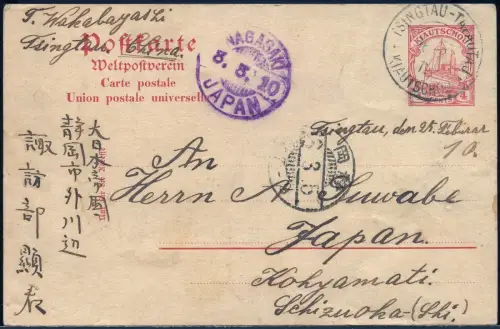 T. Wakabayashi
Tsingtau China.
Postkarte
Weltpostverein
Carte postale
Union postale universelle
NAGASAKI
3. 3. 10
JAPAN
TSINGTAU
KIAUTSCHOU
KIAUTSCHOU
Tsingtau, den 25. Februar
10.
An
Herrn A. Suwabe
Japan.
Kohyamati.
Schizuoka (Shi.)
大日本帝国
静岡市外川辺
諏訪部顕衣